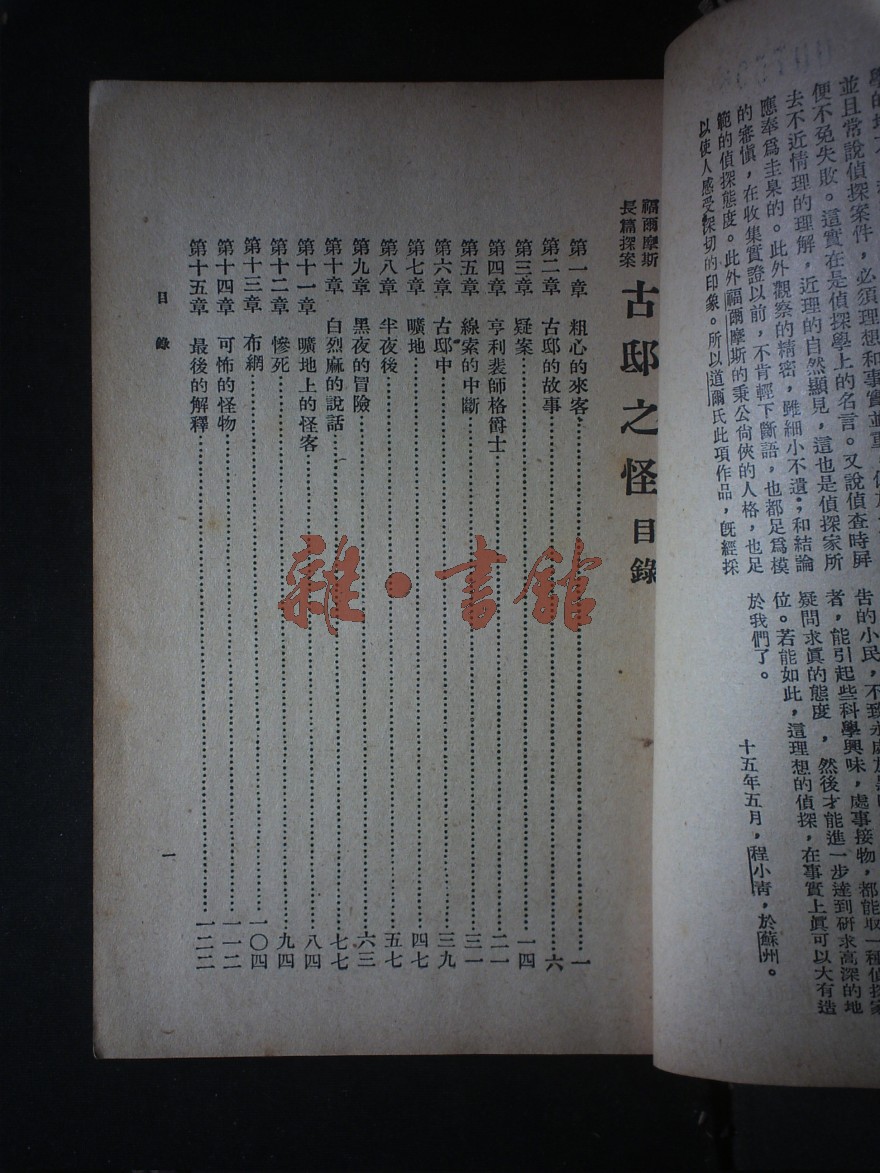 並且常說偵探案件，必須理想和事實並重，
便不免失敗。這實在是偵探學上的名言。又說偵查時屏
去不近情理的理解，近理的自然顯見，這也是偵探家所
應奉爲圭臬的。此外觀察的精密，雖細小不遺；和結論
的審愼，在收集實證以前，不肯輕下斷語，也都足爲模
範的偵探態度。此外福爾摩斯的秉公尙俠的人格，也足
以使人感受深切的印象。所以道爾氏此項作品，旣經採
告的小民，不致永處於
者，能引起些科學興味，處事接物，都能取一種偵探家
疑問求眞的態度，然後才能進一步達到研求高深的地
位。若能如此，這理想的偵探，在事實上眞可以大有造
於我們了。
十五年五月，程小靑，於蘇州。
福爾摩斯
長篇探案
古邸之怪目錄
第一章　粗心的來客……一
第二章　古邸的故事……六
第三章　疑案……一四
第四章　亨利裴師格爵士……二一
第五章　線索的中斷……三一
第六章　古邸中……三九
第七章　曠地……四七
第八章　半夜後……五七
第九章　黑夜的冒險……六三
第十章　白烈麻的說話……七七
第十一章　曠地上的怪客……八四
第十二章　慘死……九四
第十三章　布網……一〇四
第十四章　可怖的怪物……一一二
第十五章　最後的解釋……一二二
目錄
一
雜·書館